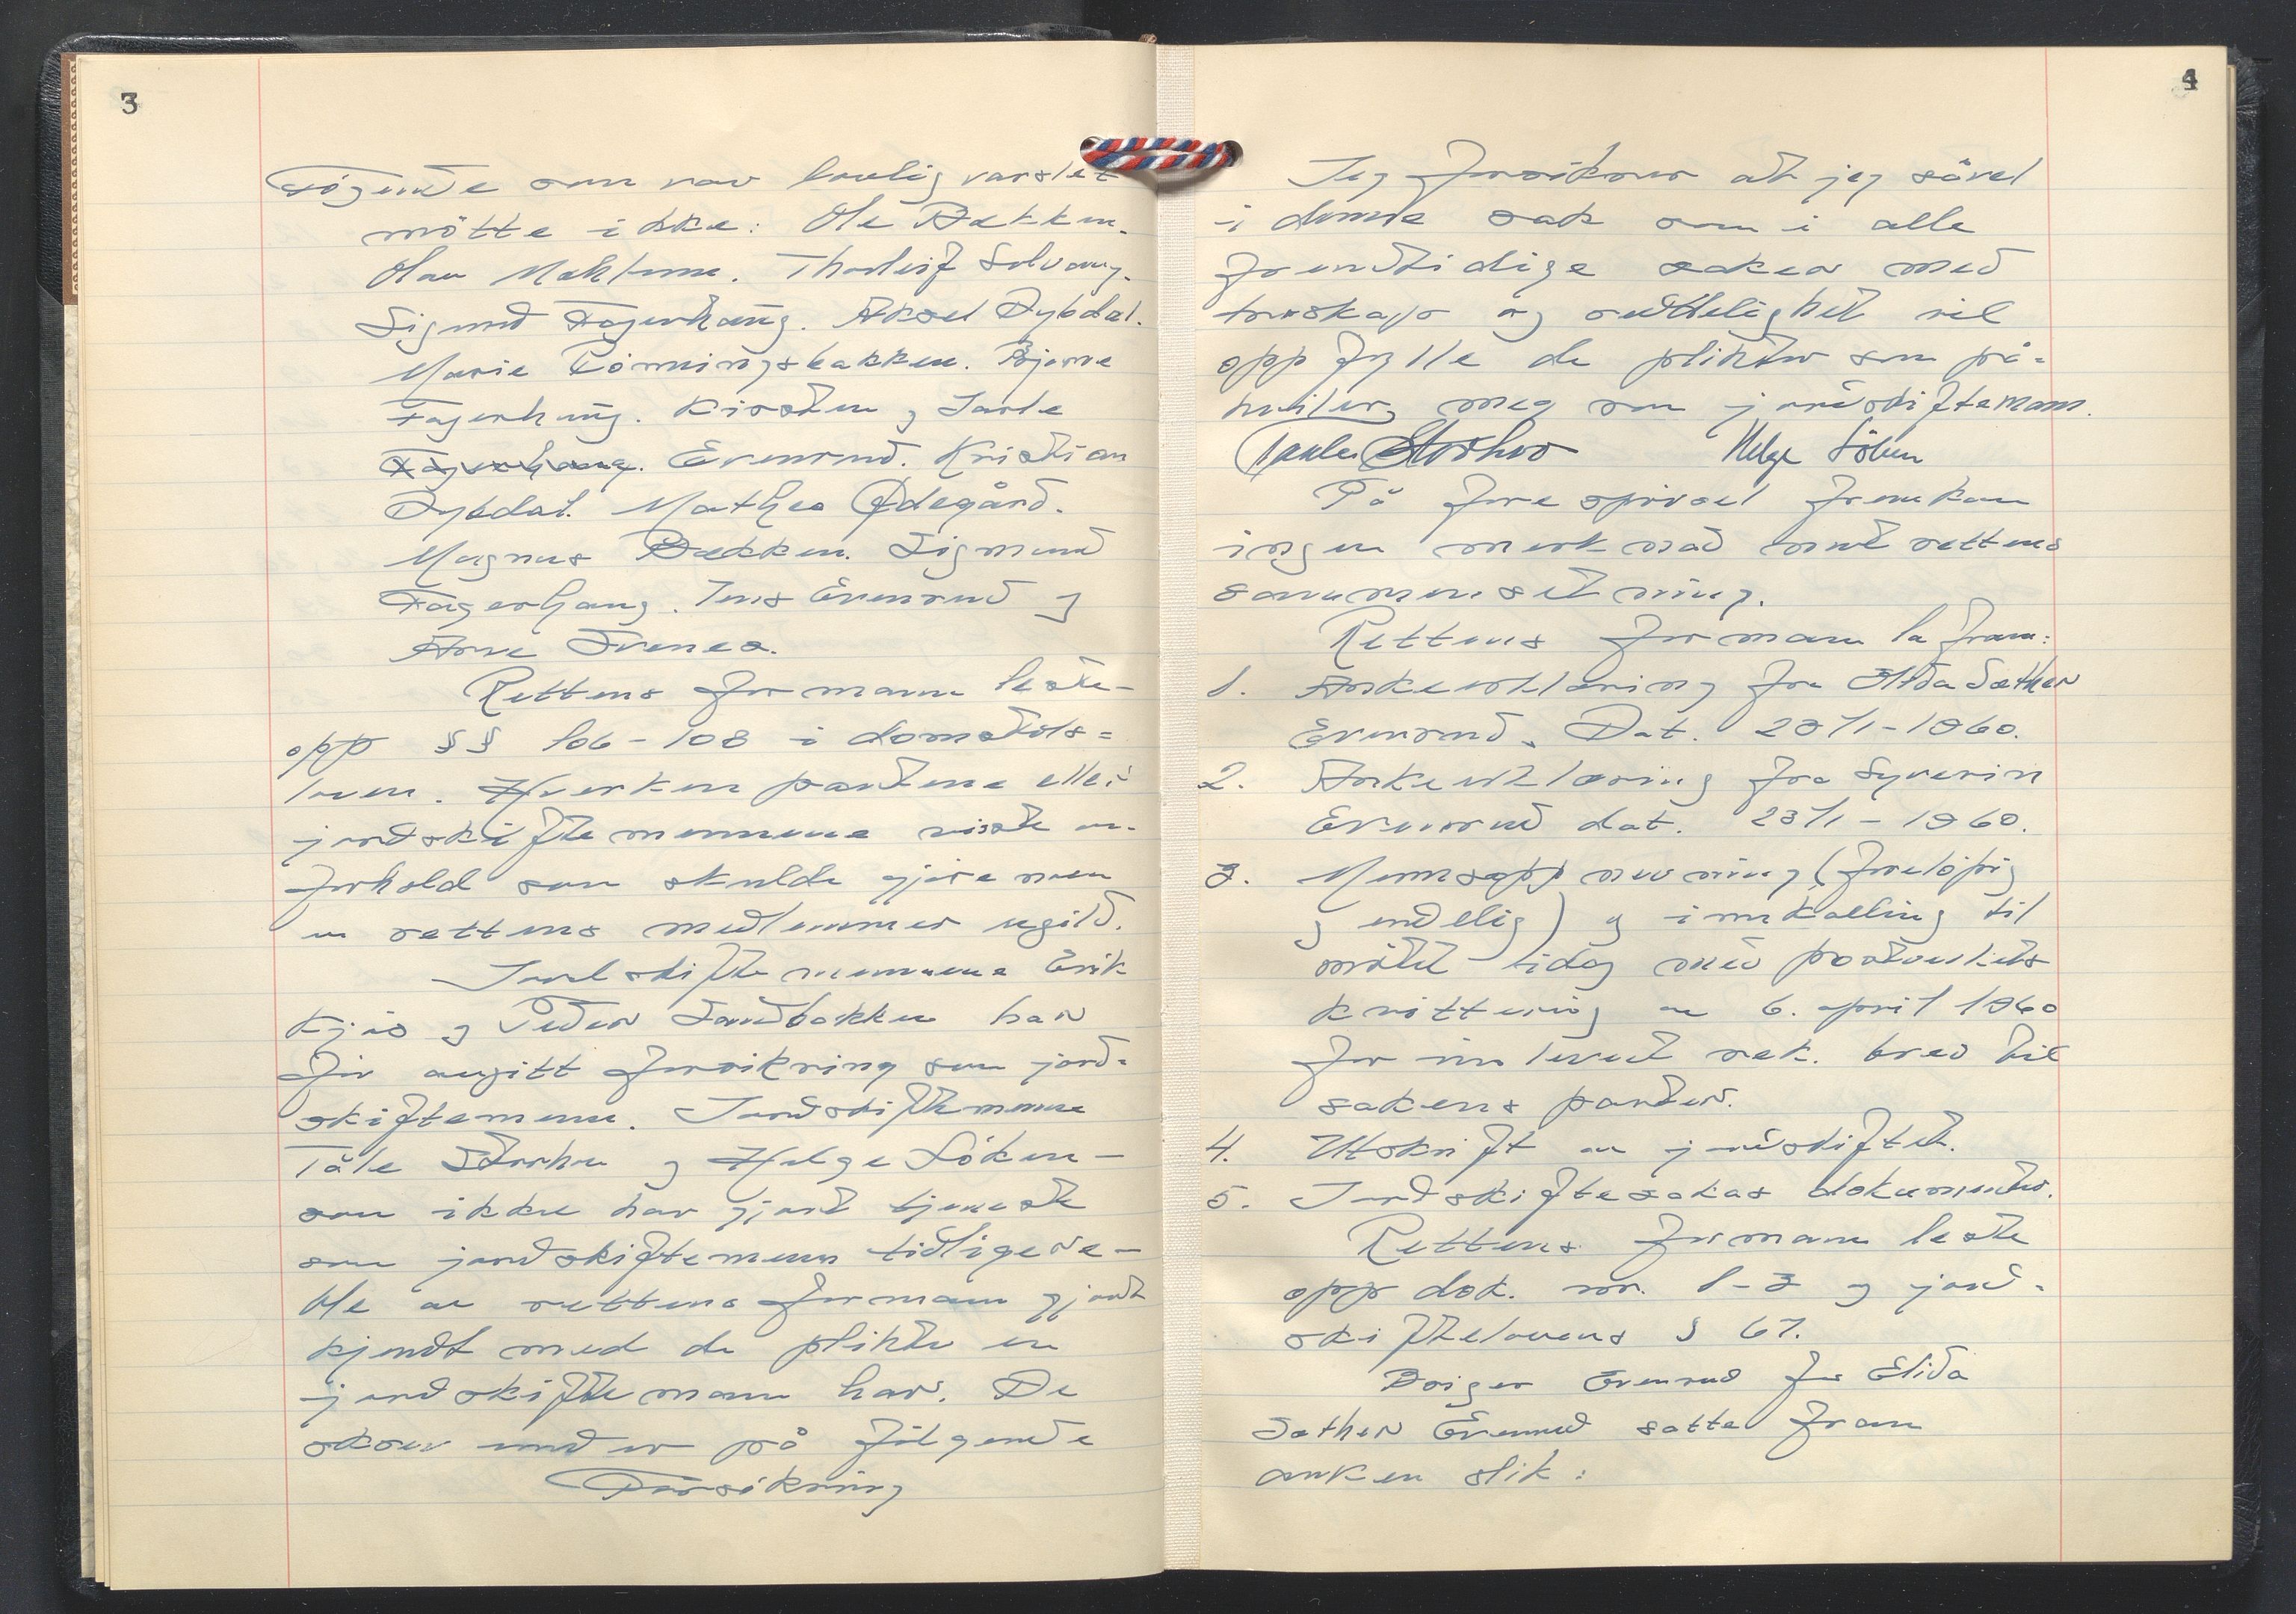 3
Følgende som var lovlig varslet
møtte ikke: Ole Bækken.
Olav Mæhlum. Thorleif Solvang.
Sigurd Fagerhaug. Aksel Dybdal.
Marie Rönningsbakken. Bjarne
Fagerhaug. Kirsten og Jarle
Fagerhaug. Evenrud. Kristian
Dybdal. Mathea Ødegård.
Magnus Bækken. Sigmund
Fagerhaug. Jens Evenrud og
Arne Svenes.
Rettens formann leste
opp §§ 106-108 i domstols=
loven. Hverken partene eller
jordskiftemennene visste om
forhold som skulde gjøre noen
av rettens medlemmer ugild.
Jordskiftemennene Erik
Kjøs og Peder Sandbakken har
før avgitt forsikring som jord=
skiftemenn. Jordskiftemennene
Påle Storhov og Helge Löken -
som ikke har gjort tjeneste
som jordskiftemenn tidligere -
ble av rettens formann gjort
kjendt med de plikter en
jordskiftemann har. De
skrev under på fölgende
Forsikring
4
Jeg forsikrer at jeg såvel
i denne sak som i alle
fremtidige saker med
troskap og redelighet vil
oppfylle de plikter som på=
hviler meg som jordskiftemann.
Storhov Helge Löken
På forespörsel fremkom
ingen merknad mot rettens
sammensetning.
Rettens formann la fram:
1. Ankeerklæring fra Elida Sæther
Evenrud. Dat. 23/1-1960.
2. Ankeerklæring fra Syverin
Evenrud dat. 23/1-1960.
3. Mannsoppnevning (foreløpig
og endelig) og innkalling til
møtet idag med postverkets
kvittering av 6. april 1960
for innlevert rek. brev til
sakens parter.
4. Utskrift av jordskiftet.
5. Jordskiftesakas dokumenter.
Rettens formann leste
opp dok. nr. 1-3 og jord=
skiftelovens § 67.
Birger Evenrud for Elida
Sæther Evenrud satte fram
anken slik: